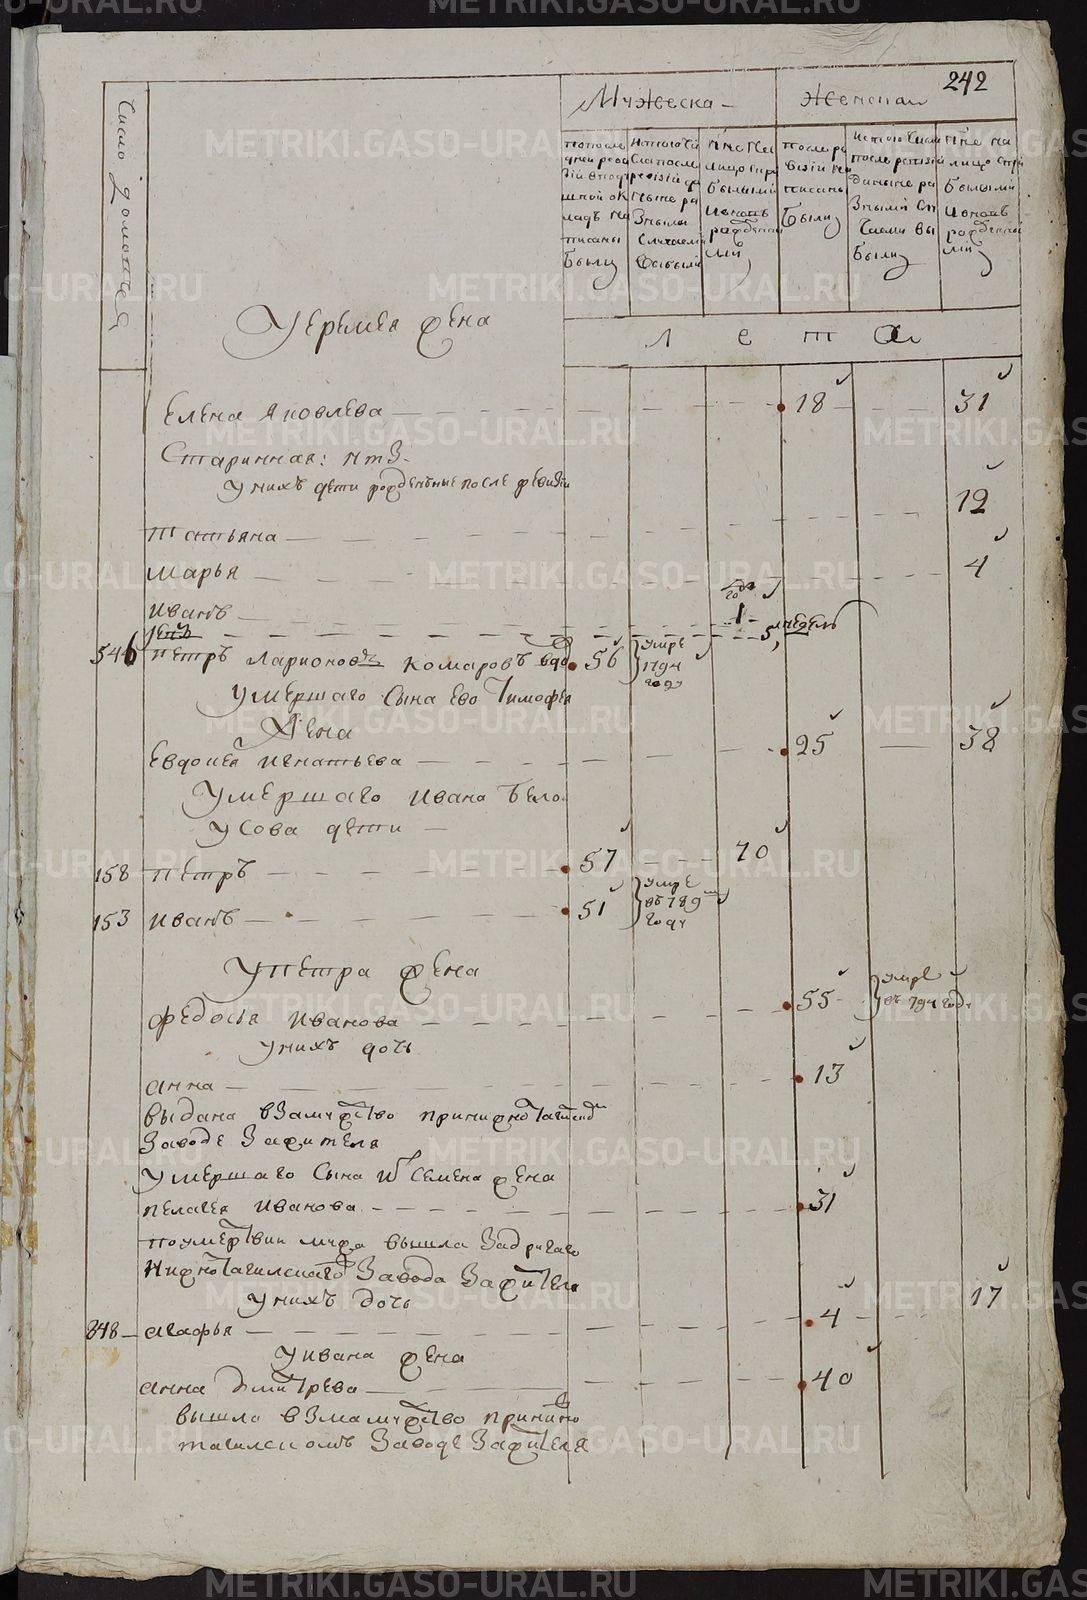 METRIKI.GASO-URAL.RU
242
Число домовъ
Мужеска
Женска
По последней ревизии в подушной оклад написаны были
Из того числа после ревизии разными случаями выбыли
Ныне налицо с прибылыми и вновь рожденными
После ревизии написаны были
Из того числа после ревизии до ныне разными случаями выбыли
Ныне на лицо с прибылыми и вновь рожденными
лета
У еремея жена
елена яковлева 18 31
Старинная:
У нихъ дети рожденные после ревизии
татьяна 12
Марья 4
иванъ 1
5 недель
546 петръ ларионовъ комаровъ вдо 56 умре 1794 году
умершаго сына ево тимофея
Жена
евдокея игнатьева 25 38
Умершаго ивана бело
усова дети
158 петръ 57 70
153 иванъ 51 умре въ 789м году
У петра жена
федосья иванова 55 умре въ 794 году
У нихъ дочь
анна 13
выдана в замужство при нижнотагилском
заводе за жителя
умершаго сына их семена жена
пелагея иванова 31
по умертвии мужа вышла за другаго
нижнотагилскаго завода за жителя
У нихъ дочь 17
248 агафья 4
У ивана жена
анна дмитрева 40
вышла в замужство при нижно
тагилскомъ заводе за жителя